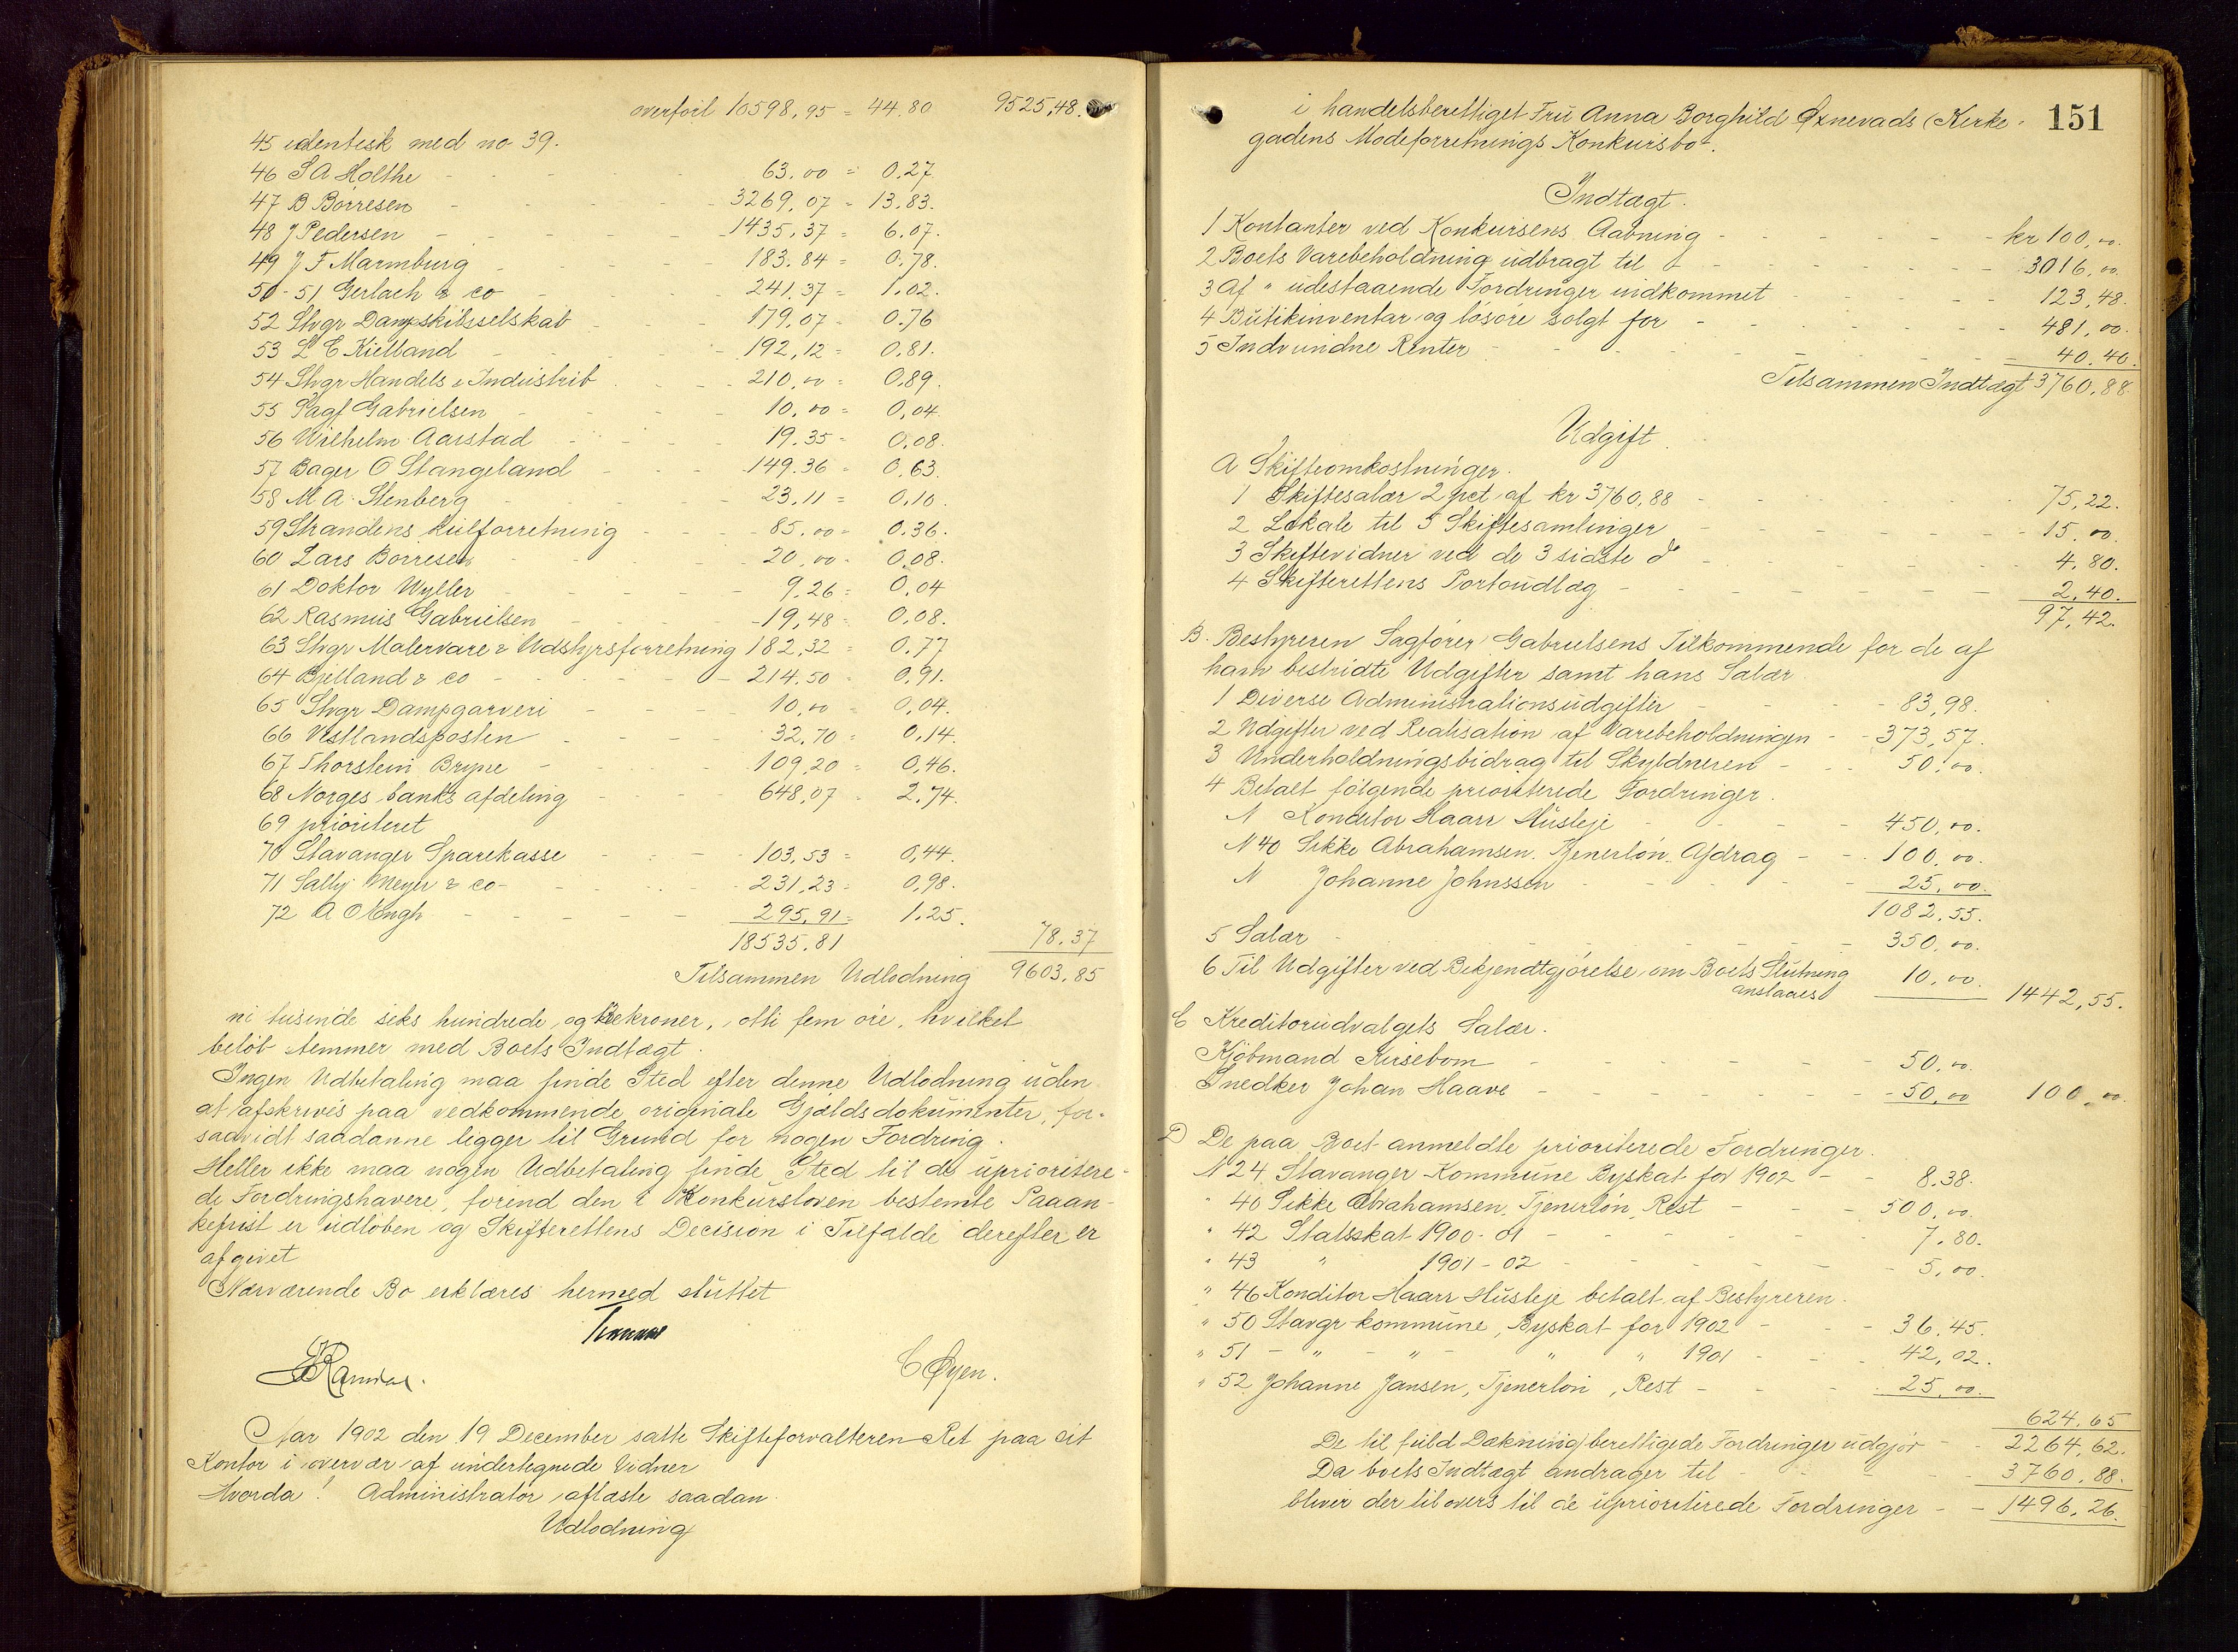 overført 10598,95 = 44.80 9525,48.
45 identisk med no 39.
46 S A Holthe - - - - 63.00 = 0.27
47 B Børresen - - - - 3269,07 = 13.83.
48 J Pedersen - - - - - 1435,37 = 6.07.
49 J F Marmburg - - - - 183.84 = 0.78.
50-51 Gerlach & co - - - - 241.37 = 1.02.
52 Stvgr Dampskibsselskab - - - 179,07 = 0.76
53 L E Kielland - - - - 192,12 = 0,81.
54 Stvgr Handels & Industrib - - - 210,00 = 0,89.
55 Sagf Gabrielsen - - - - 10,00 = 0,04.
56 Wilhelm Aarstad - - - - 19.35 = 0,08.
57 Bager O Stangeland - - - 149.36 = 0,63.
58 M. A. Stenberg - - - - 23,11 = 0,10.
59 Strandens Kulforretning - - - 85.00 = 0.36.
60 Lars Børresen - - - - 20,00 = 0,08.
61 Doktor Wyller - - - - 9,26 = 0,04
62 Rasmus Gabrielsen - - - 19,48 = 0,08.
63 Stvgr Malervare & Udstyrsforretning 182,32 = 0.77
64 Bjelland & co - - - - 214.50 = 0,91.
65 Stvgr Dampgarveri - - - 10,00 = 0,04.
66 Vestlandsposten - - - - 32,70 = 0,14.
67 Thorstein Bryne - - - - 109,20 = 0,46.
68 Norges banks afdeling - - - 648,07 = 2.74.
69 prioriteret
70 Stavanger Sparekasse - - - 103,53 = 0,44.
71 Sally Meyer & co - - - - 231,23 = 0,98.
72 A O Mugh - - - - 295,91 = 1.25.
18535.81 78.37
Tilsammen Udlodning 9603.85
ni tusinde seks hundrede og tre kroner, otti fem øre, hvilket
beløb stemmer med Boets Indtægt.
Ingen Udbetaling maa finde Sted efter denne Udlodning uden
at afskrives paa vedkommende originale Gjældsdokumenter, for-
saavidt saadanne ligger til Grund for nogen Fordring.
Heller ikke maa nogen Udbetaling finde Sted til de uprioritere-
de Fordringshavere, førend den i Konkursloven bestemte Paaan-
kefrist er udløben og Skifterettens Decision i Tilfælde derefter er
afgivet
Nærværende Bo erklæres hermed sluttet
C Øyen.
Aar 1902 den 19 December satte Skifteforvalteren Ret paa sit
Kontor i overvær af undertegnede Vidner
Hvorda! Administrator aflæste saadan
Udlodning
151
i handelsberettiget Fru Anna Borghild Øxnevads (Kirke-
gadens Modeforretnings Konkursbo.
Indtægt.
1 Kontanter ved Konkursens Aabning - - - - kr 100,00.
2 Boets Varebeholdning udbragt til - - - - 3016,00.
3 Af " udestaaende Fordringer indkommet - - - 123,48.
4 Butikinventar og løsøre solgt for - - - - 481,00.
5 Indvundne Renter - - - - - 40.40.
Tilsammen Indtægt 3760,88
Udgift
A Skifteomkostninger.
1 Skiftesalær 2 pct af kr 3760,88 - - - - 75,22.
2 Lokale til 5 Skiftesamlinger - - - - 15.00.
3 Skiftevidner ved de 3 sidste do - - - - 4,80.
4 Skifterettens Portoudlæg - - - - 2,40.
97,42.
B. Bestyreren Sagfører Gabrielsens Tilkommende for de af
ham bestridte Udgifter samt hans Salær
1 Diverse Administrationsudgifter - - 83,98.
2 Udgifter ved Realisation af Varebeholdningen - - 373,57.
3 Underholdningsbidrag til Skyldneren - - 50,00.
4 Betalt følgende prioriterede Fordringer.
N Konditor Haars Husleje - - - 450,00.
N 40 Sikke Abrahamsen. Tjenerløn. Afdrag - - 100,00.
N Johanne Johnssen - - - 25,00.
1082,55.
5 Salær - - - - - 350,00.
6 Til Udgifter ved Bekjendtgjørelse om Boets Slutning
anslaaes 10,00. 1442,55.
C Kreditorudvalgets Salær.
Kjøbmand Kirsebom - - - - 50,00.
Snedker Johan Haave - - - - 50,00 100,00.
D De paa Boet anmeldte prioriterede Fordringer.
N 24 Stavanger Kommune Byskat for 1902 - - 8.38.
" 40 Sikke Abrahamsen, Tjenerløn, Rest - - - 500,00.
" 42 Statsskat 1900-01 - - - - 7.80.
" 43 " 1901-02 - - - - 5,00.
" 46 Konditor Haars Husleje betalt af Bestyreren.
" 50 Stavgr kommune, Byskat for 1902 - - - 36.45.
" 51 - " - " - " " 1901 - - - 42,02.
" 52 Johanne Jansen, Tjenerløn, Rest - - - 25,00.
624,65
De til fuld Dækning berettigede Fordringer udgjør - - 2264,62.
Da boets Indtægt andrager til - - - 3760,88.
bliver der tilovers til de uprioriterede Fordringer - - 1496,26.